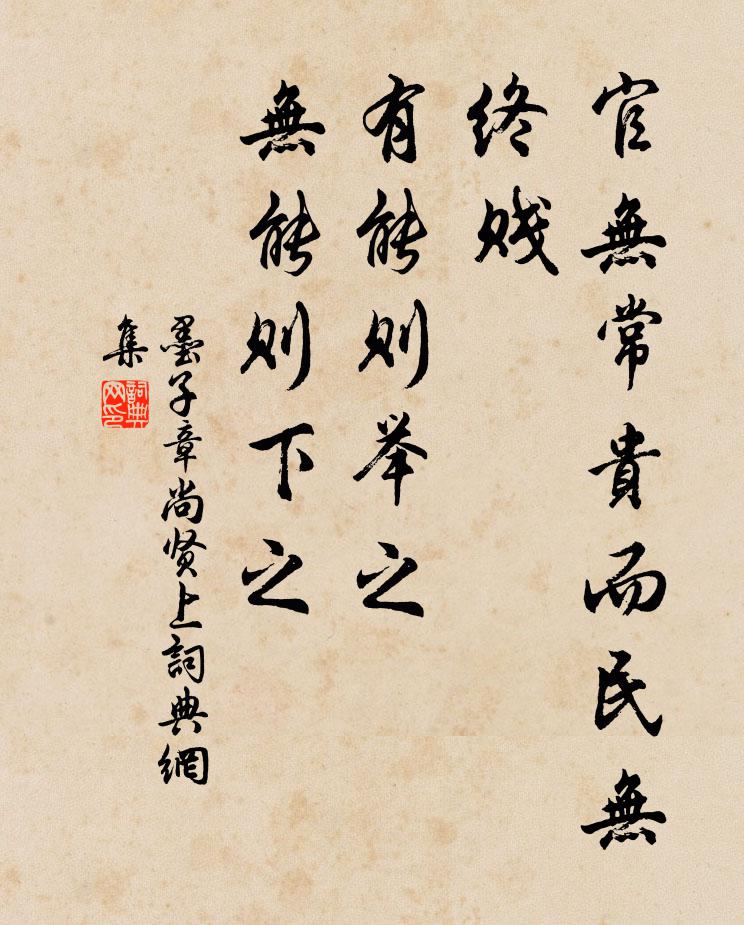 官無常貴而民無
終賤
有能则举之
無能则下之
墨子章尚贤上詞典網
集
詞典
网印